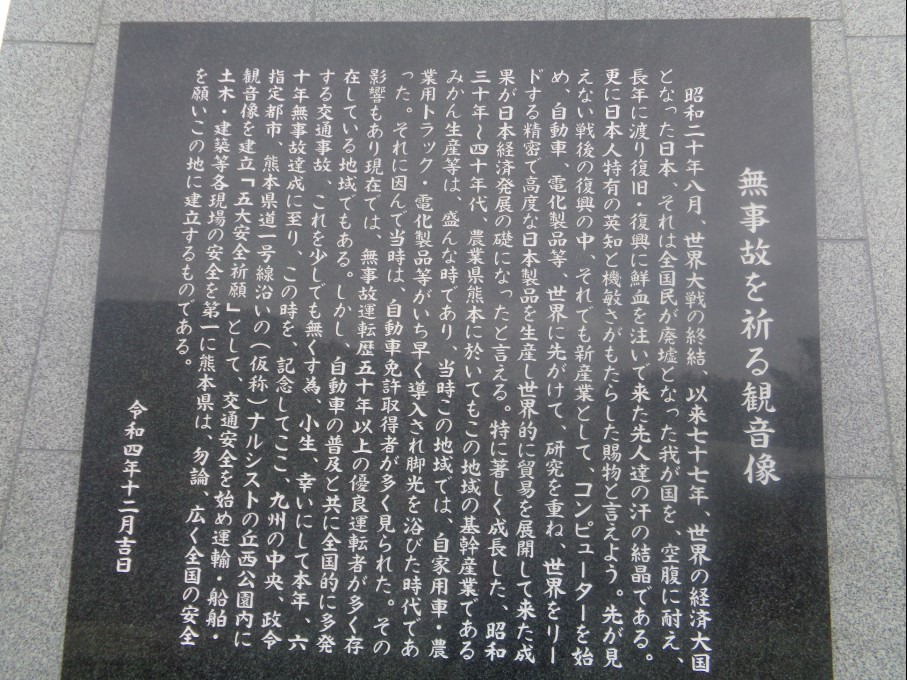 無事故を祈る観音像
昭和二十年八月、世界大戦の終結、以来七十七年、世界の経済大国
となった日本、それは全国民が廃墟となった我が国を、空腹に耐え、
長年に渡り復旧・復興に鮮血を注いで来た先人達の汗の結晶である。
更に日本人特有の英知と機敏さがもたらした賜物と言えよう。先が見
えない戦後の復興の中、それでも新産業として、コンピューターを始
め、自動車、電化製品等、世界に先がけて、研究を重ね、世界をリー
ドする精密で高度な日本製品を生産し世界的に貿易を展開して来た成
果が日本経済発展の礎になったと言える。特に著しく成長した、昭和
三十年～四十年代、農業県熊本に於いてもこの地域の基幹産業である
みかん生産等は、盛んな時であり、当時この地域では、自家用車・農
業用トラック・電化製品等がいち早く導入され脚光を浴びた時代であ
った。それに因んで当時は、自動車免許取得者が多く見られた。その
影響もあり現在では、無事故運転歴五十年以上の優良運転者が多く存
在している地域でもある。しかし、自動車の普及と共に全国的に多発
する交通事故、これを少しでも無くす為、小生、幸いにして本年、六
十年無事故達成に至り、この時を、記念してここ、九州の中央、政令
指定都市、熊本県道一号線沿いの（仮称）ナルシストの丘西公園内に
観音像を建立「五大安全祈願」として、交通安全を始め運輸・船舶・
土木・建築等各現場の安全を第一に熊本県は、勿論、広く全国の安全
を願いこの地に建立するものである。
令和四年十二月吉日